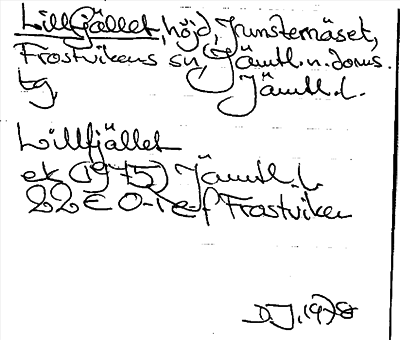 Lillfjället, höjd, Junsternäset,
Frostvikens sn, Jämtl. n. doms.
tg, Jämtl. l.
Lillfjället
ek (1975) Jämtl. l.
22E 0-1 e-f Frostviken
D.J. 1978